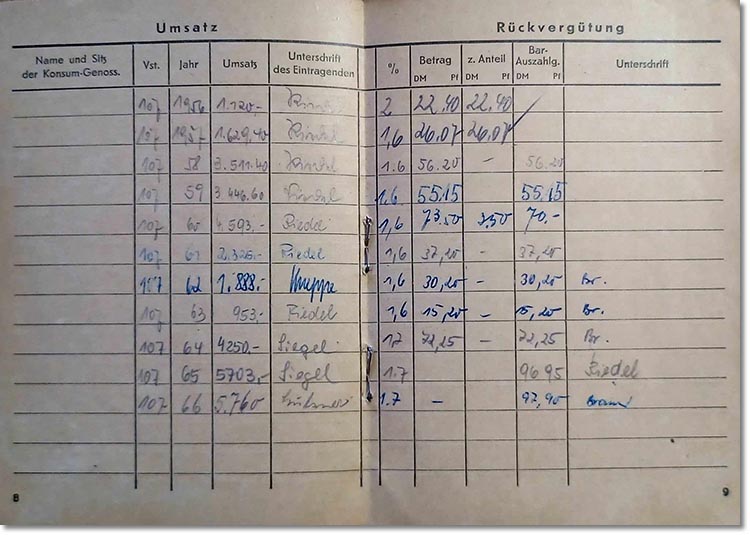 Umsatz Rückvergütung
Name und Sitz der Konsum-Genoss. Vst. Jahr Umsatz Unterschrift des Eintragenden % Betrag DM Pf z. Anteil DM Pf Bar-Auszahlg. DM Pf Unterschrift
107 1956 1.120,- 2 22.40 22.40
107 1957 1.629.40 1,6 26.07 26.07
107 58 3.511.40 1.6 56.20 - 56.20
107 59 3 446.60 1,6 55.15 55.15
107 60 4.593.- Riedel 1,6 73.50 3.50 70.-
107 61 2.326.- Riedel 1,6 37,20 - 37,20
107 62 1.888.- Knuppe 1,6 30,20 - 30,20 Br.
107 63 953.- Riedel 1,6 15,20 - 15,20 Br.
107 64 4250.- Siegel 1.7 72,25 - 72,25 Br.
107 65 5703,- Siegel 1.7 96 95 Riedel
107 66 5.760 1.7 - 97,90
8 9